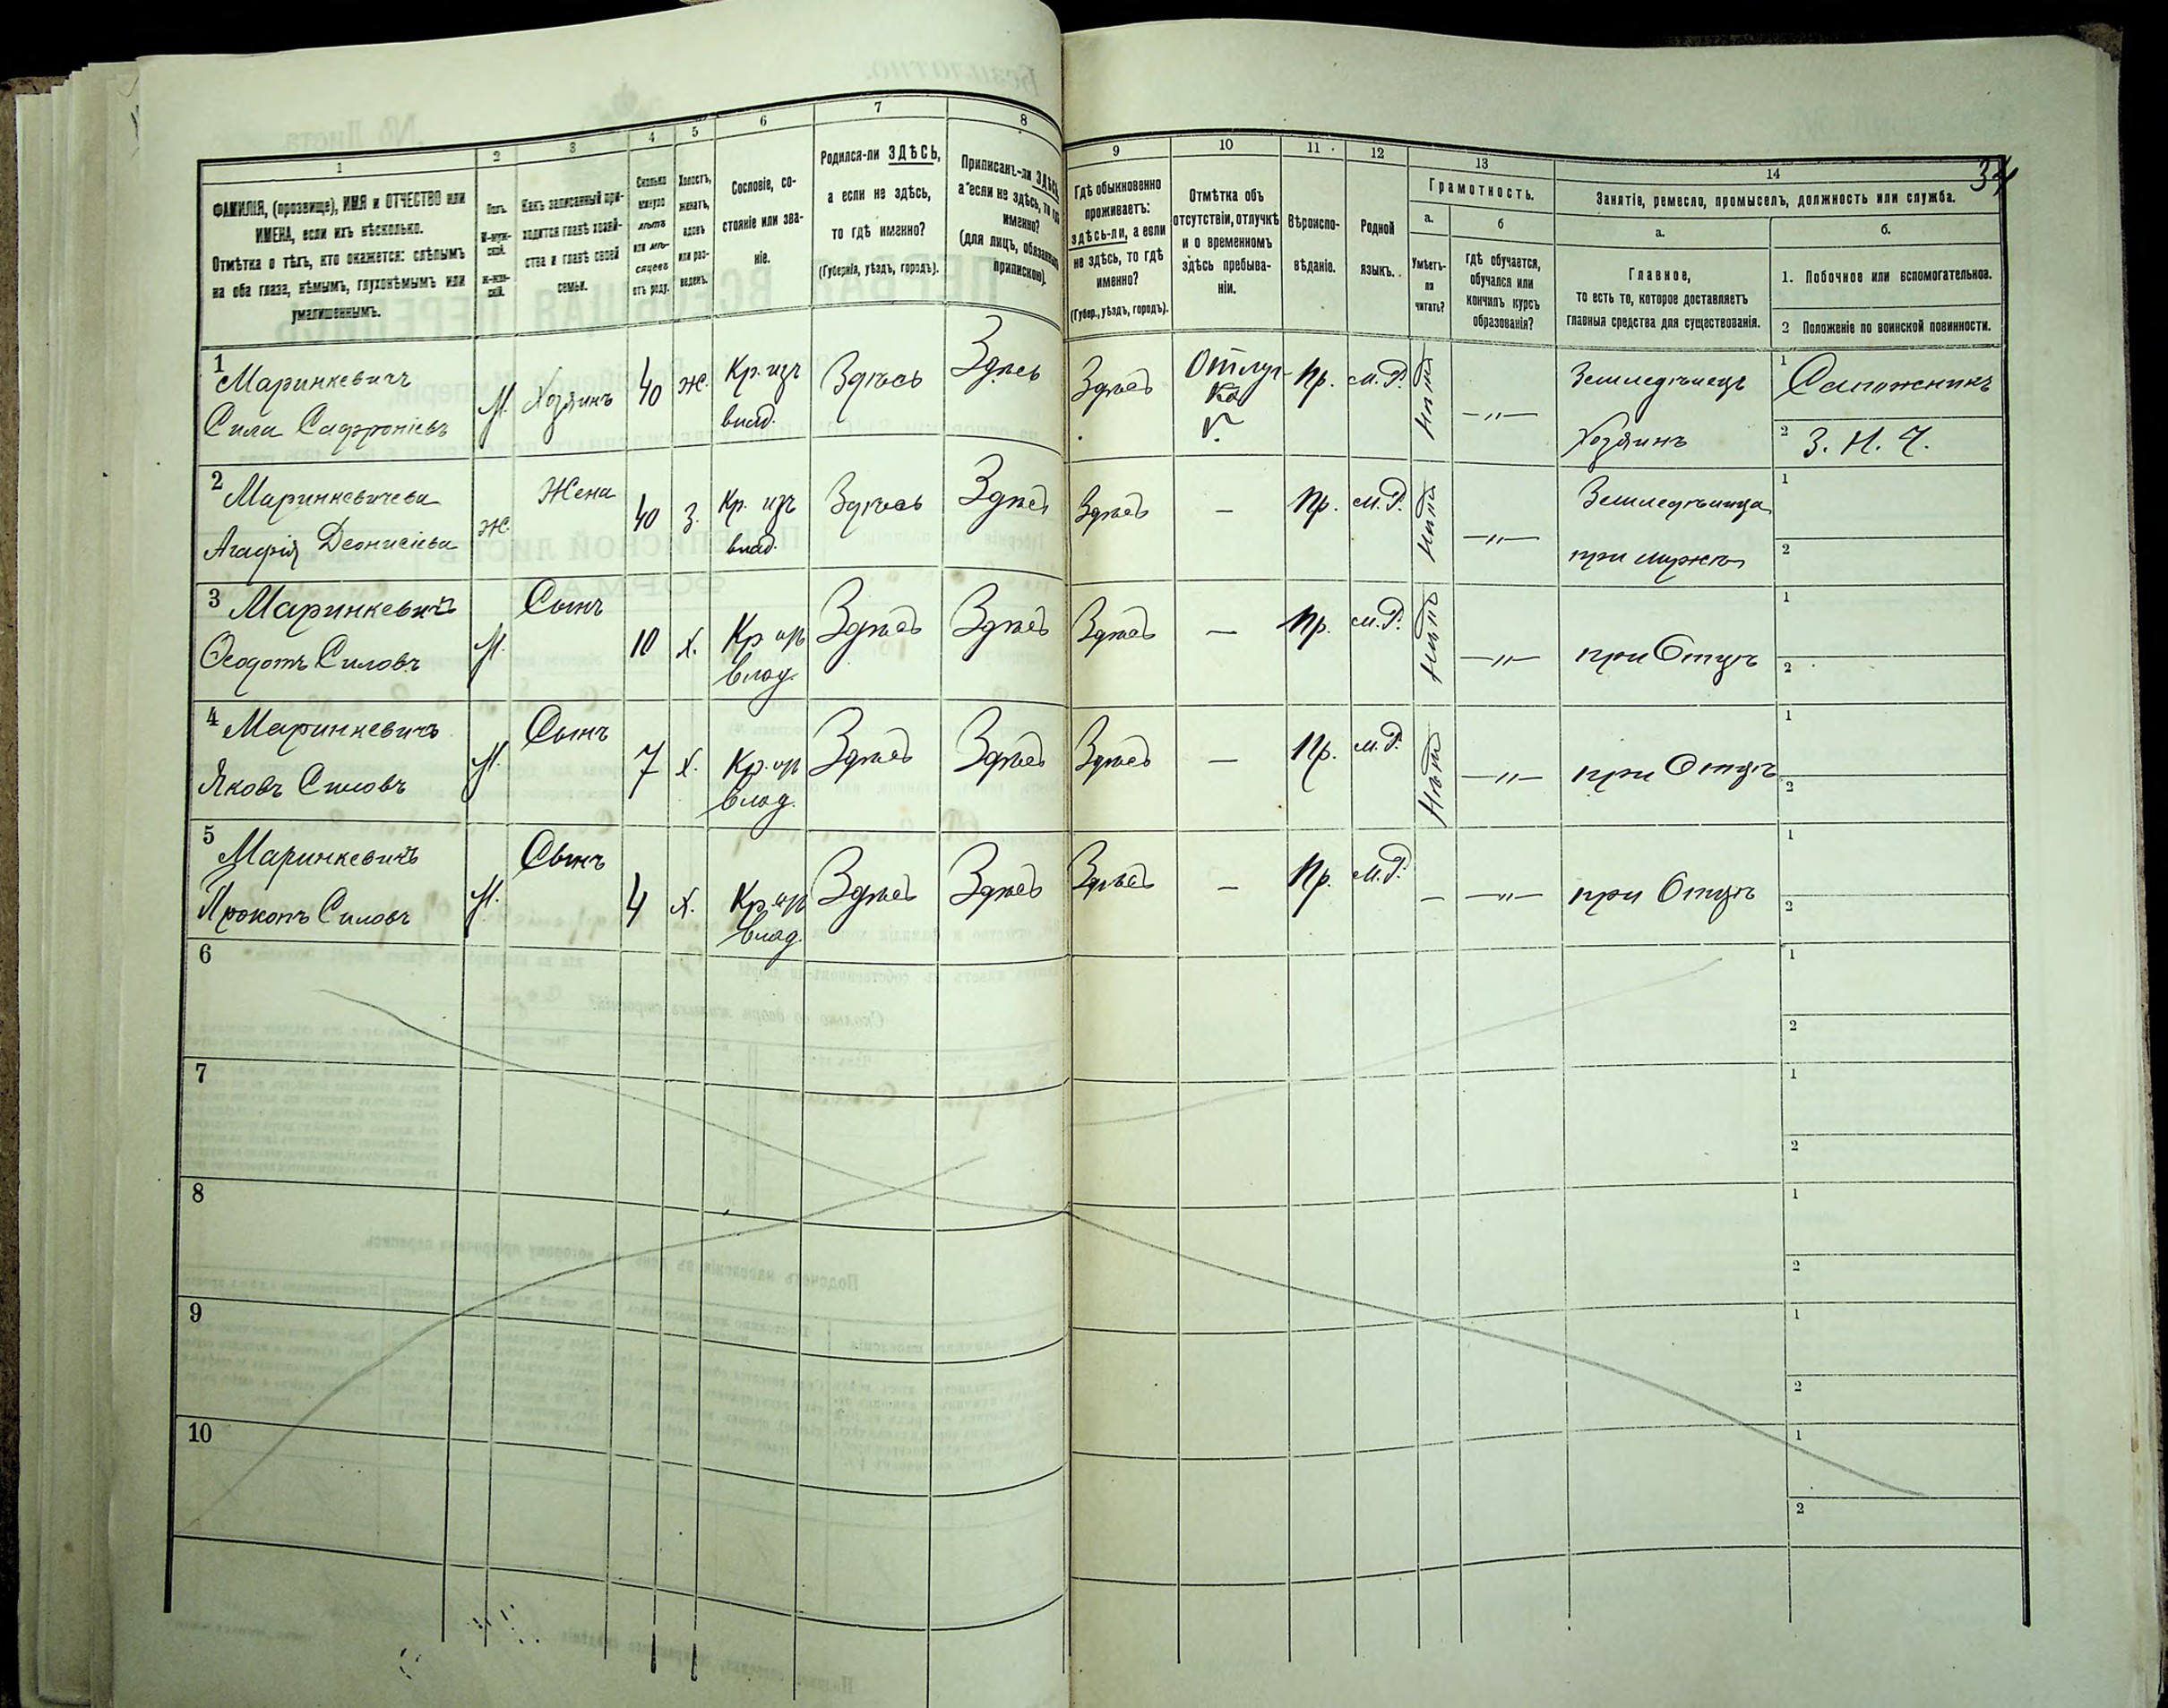 34
1
2
3
4
5
6
7
8
9
10
11
12
13
14
ФАМИЛІЯ, (прозвище), ИМЯ и ОТЧЕСТВО или
ИМЕНА, если ихъ нѣсколько.
Отмѣтка о тѣхъ, кто окажется: слѣпымъ
на оба глаза, нѣмымъ, глухонѣмымъ или
умалишеннымъ.
Полъ.
М-муж-
ской.
Ж-жен-
скій.
Какъ записанный при-
ходится главѣ хозяй-
ства и главѣ своей
семьи.
Сколько
минуло
лѣтъ
или мѣ-
сяцевъ
отъ роду.
Холостъ,
женатъ,
вдовъ
или раз-
веденъ.
Сословіе, со-
стояніе или зва-
ніе.
Родился-ли ЗДѢСЬ,
а если не здѣсь,
то гдѣ именно?
(Губернія, уѣздъ, городъ).
Приписанъ-ли ЗДѢСЬ,
а если не здѣсь, то гдѣ
именно?
(для лицъ, обязанныхъ
припискою).
Гдѣ обыкновенно
проживаетъ:
здѣсь-ли, а если
не здѣсь, то гдѣ
именно?
(Губер., уѣздъ, городъ).
Отмѣтка объ
отсутствіи, отлучкѣ
и о временномъ
здѣсь пребыва-
ніи.
Вѣроиспо-
вѣданіе.
Родной
языкъ.
Грамотность.
а.
Умѣетъ-
ли
читать?
б
гдѣ обучается,
обучался или
кончилъ курсъ
образованія?
Занятіе, ремесло, промыселъ, должность или служба.
а.
Главное,
то есть то, которое доставляетъ
главныя средства для существованія.
б.
1. Побочное или вспомогательное.
2 Положеніе по воинской повинности.
1
Маринкевичъ
Сила Сафроніевъ
М. Хозяинъ 40 Ж. Кр. изъ
влад.
Здѣсь Здѣсь Здѣсь Отлуч-
ка
Пр. М.Р. Нѣтъ —„— Земледѣлецъ
Хозяинъ
1 Сапожникъ
2 З. Н. Ч.
2
Маринкевичева
Агафія Деонисіева
Ж. Жена 40 З. Кр. изъ
влад.
Здѣсь Здѣсь Здѣсь — Пр. М.Р. Нѣтъ —„— Земледѣлица
при мужѣ
1
2
3
Маринкевичъ
Ѳеодотъ Силовъ
М. Сынъ 10 Х. Кр. изъ
влад.
Здѣсь Здѣсь Здѣсь — Пр. М.Р. Нѣтъ —„— при Отцѣ
1
2
4
Маринкевичъ
Яковъ Силовъ
М. Сынъ 7 Х. Кр. изъ
влад.
Здѣсь Здѣсь Здѣсь — Пр. М.Р. Нѣтъ —„— при Отцѣ
1
2
5
Маринкевичъ
Прокопъ Силовъ
М. Сынъ 4 Х. Кр. изъ
влад.
Здѣсь Здѣсь Здѣсь — Пр. М.Р. — —„— при Отцѣ
1
2
6
1
2
7
1
2
8
1
2
9
1
2
10
1
2